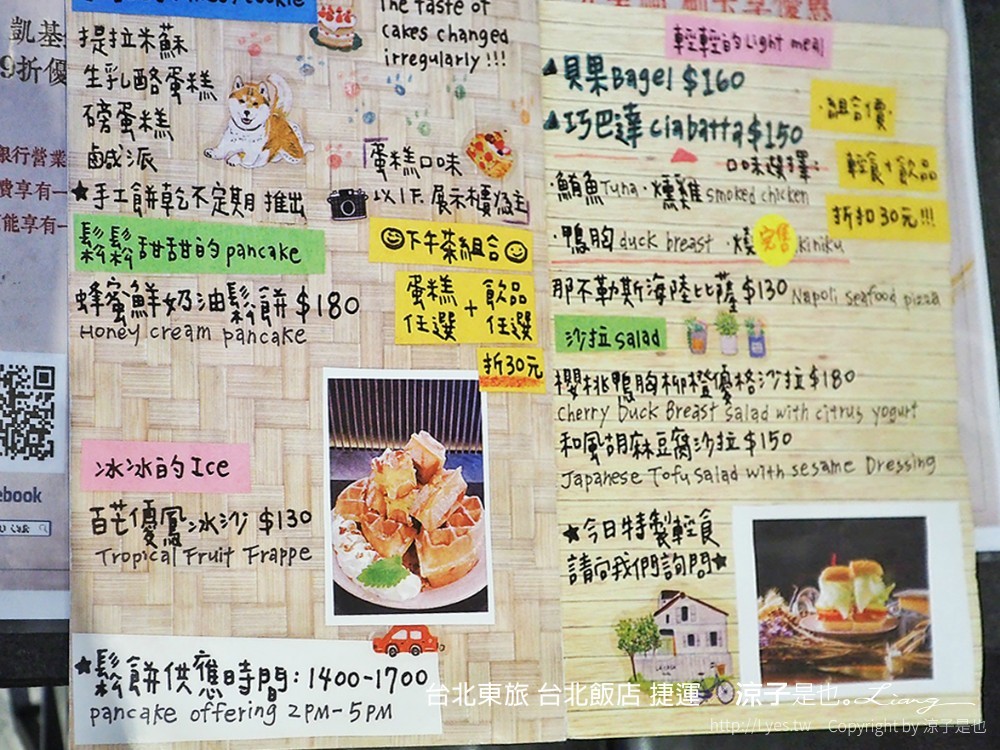 凱基
9折優
銀行營業
費享有一
能享有一
ebook
提拉米蘇
生乳酪蛋糕
磅蛋糕
鹹派
★手工餅乾不定期推出
The taste of
cakes changed
irregularly!!!
蛋糕口味
以1F展示櫃為主
鬆鬆甜甜的pancake
蜂蜜鮮奶油鬆餅 $180
Honey cream pancake
下午茶組合
蛋糕任選 + 飲品任選
折30元
冰冰的 Ice
百芒優鳳冰沙 $130
Tropical Fruit Frappe
★鬆餅供應時間:1400-1700
pancake offering 2PM-5PM
輕輕的Light meal
▲貝果Bagel $160
▲巧巴達ciabatta $150
口味選擇:
·鮪魚Tuna ·燻雞smoked chicken
·鴨胸duck breast ·燒 完售 kiniku
·組合價·
輕食+飲品
折扣30元!!!
那不勒斯海陸比薩 $130 Napoli seafood pizza
沙拉salad
櫻桃鴨胸柳橙優格沙拉 $180
Cherry Duck Breast salad with citrus yogurt
和風胡麻豆腐沙拉 $150
Japanese Tofu Salad with sesame Dressing
★今日特製輕食
請向我們詢問★
台北東旅 台北飯店 捷運 涼子是也。Liang
http://Lyes.tw Copyright by 涼子是也